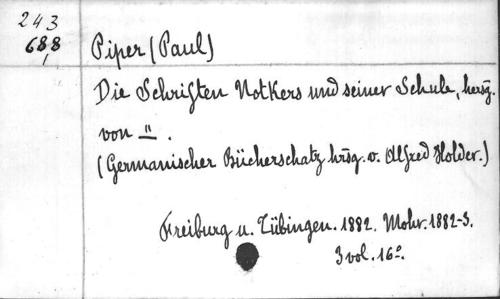 243
688
1
Piper (Paul)
Die Schriften Notkers und seiner Schule, hersg.
von ".
(Germanischer Bücherschatz hrsg. v. Alfred Holder.)
Freiburg u. Tübingen. 1882. Mohr. 1882-3.
3 vol. 16º.